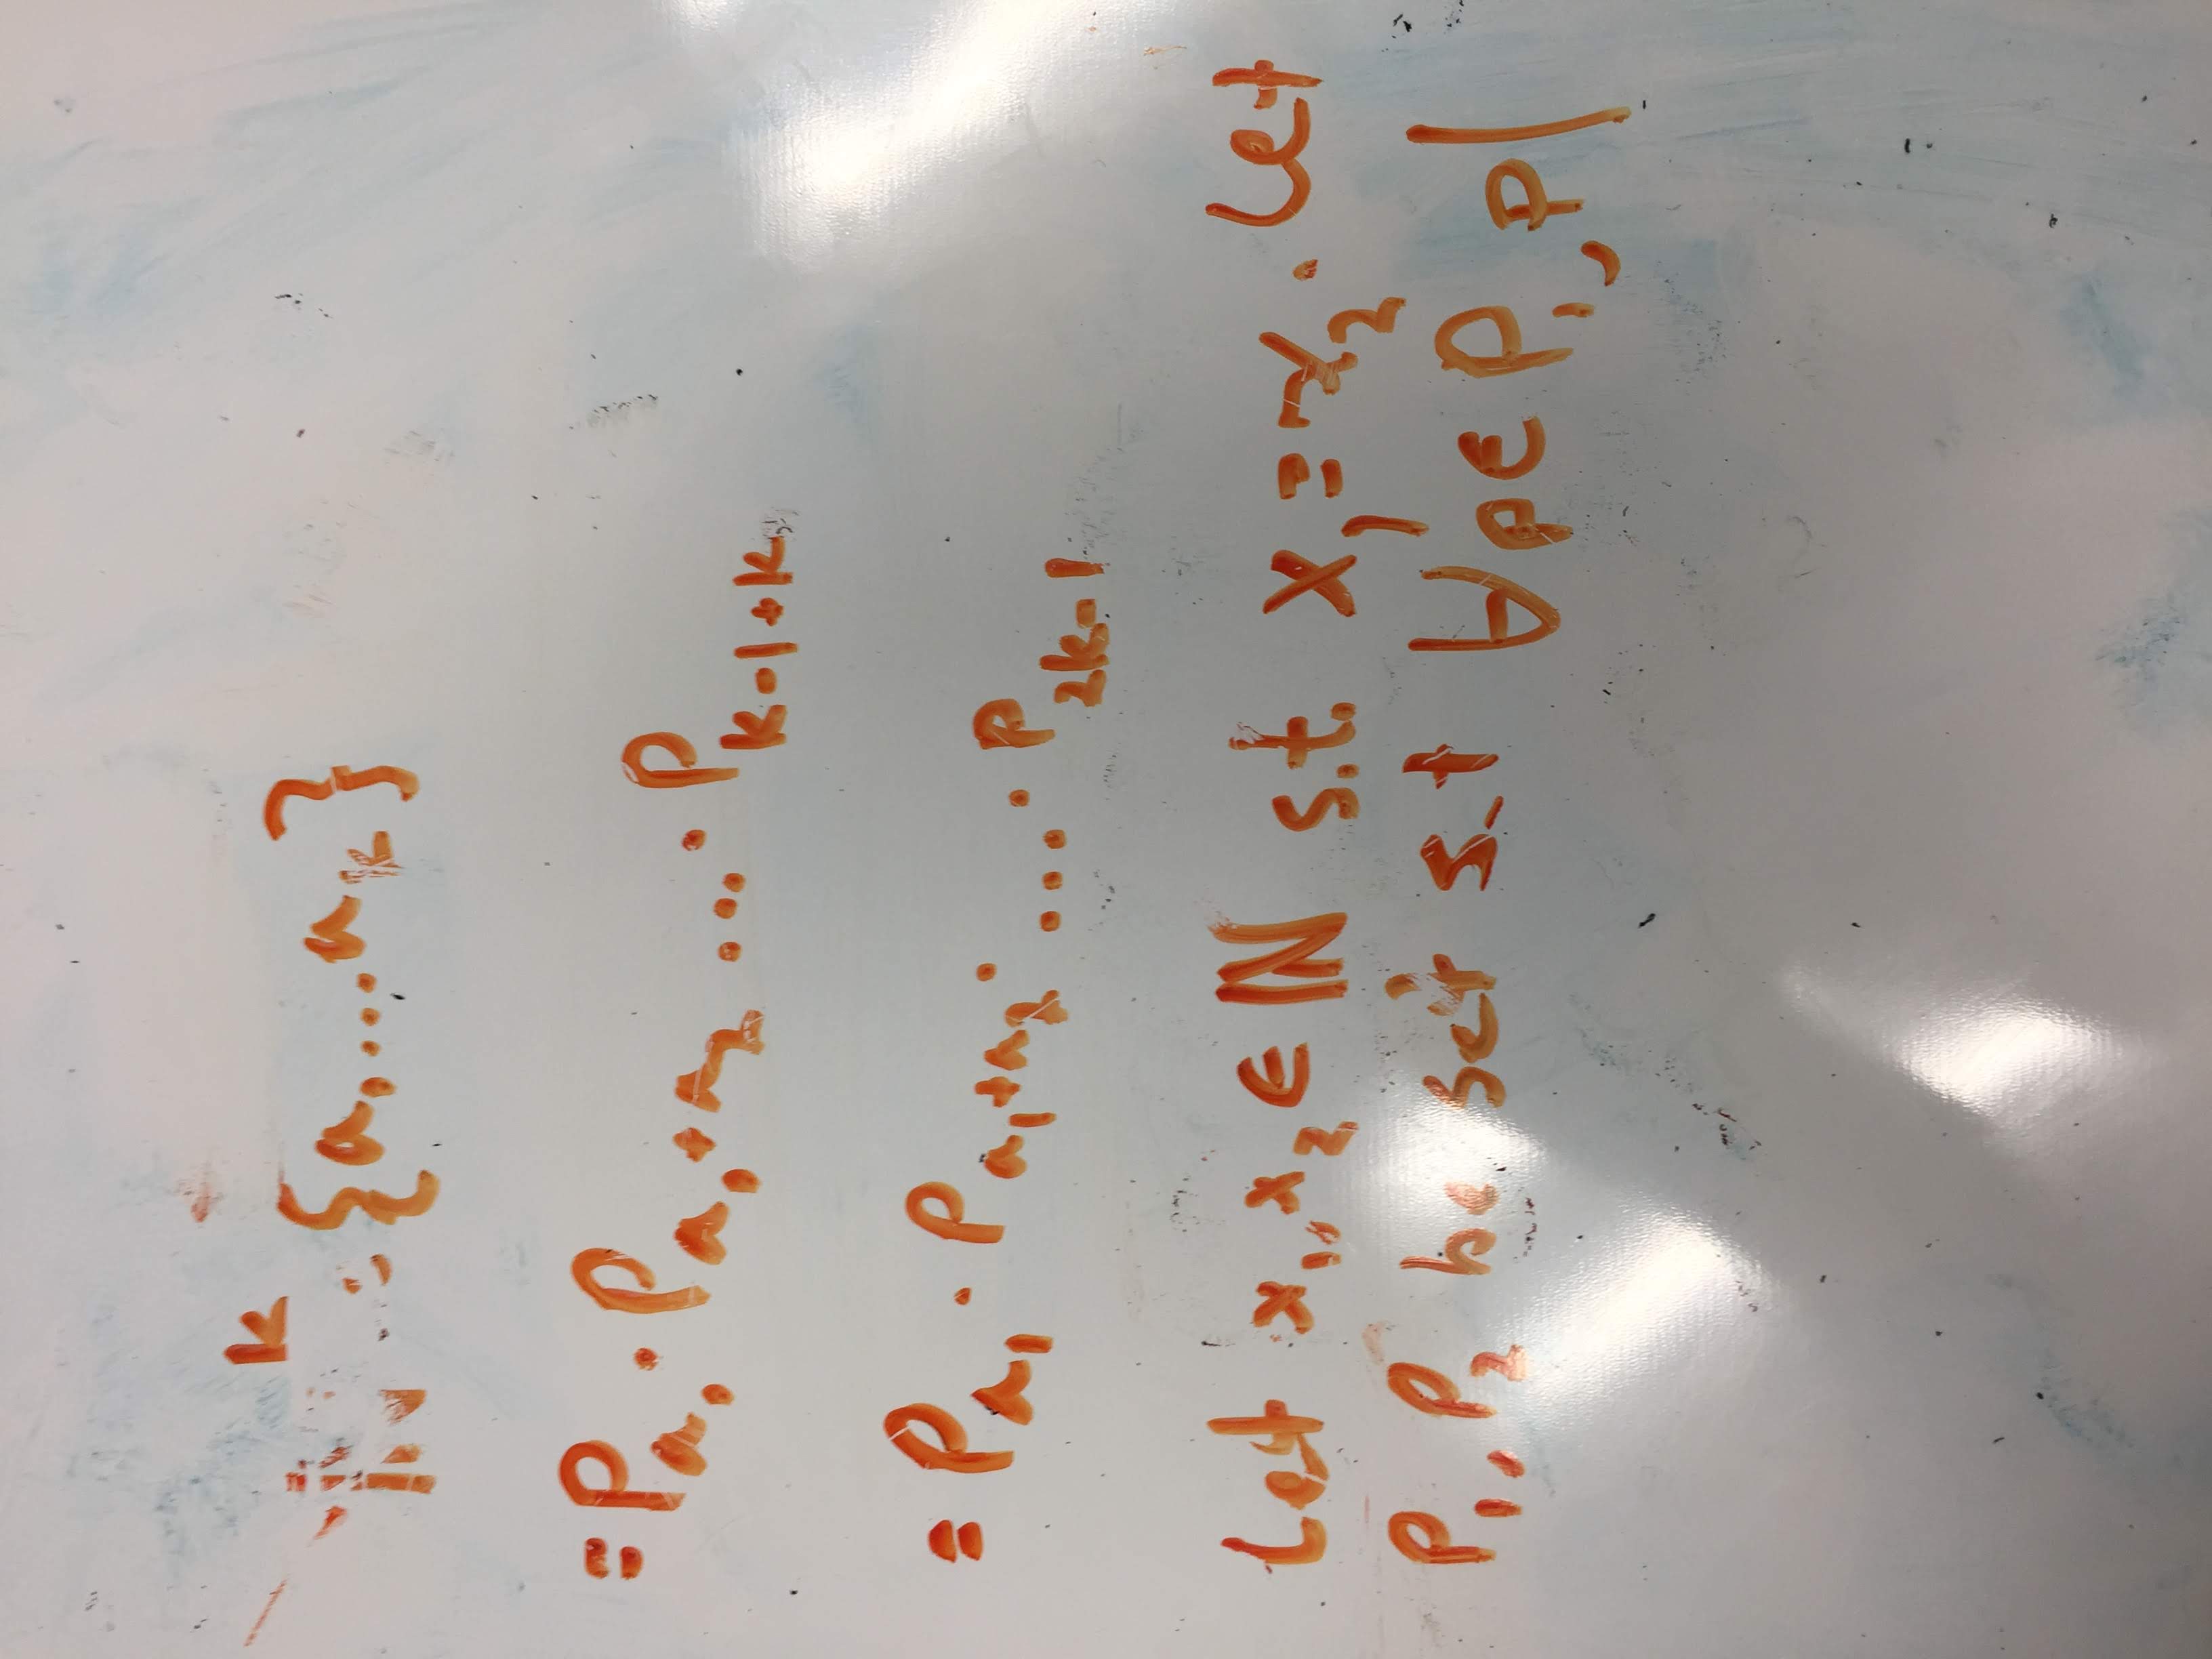 ℕᵏ = {a₁...aₖ}
= P_{a₁} · P_{a₁+a₂} ... · P_{k-1+k}
= P_{a₁} · P_{a₁+a₂} · ... · P_{2k-1}
Let x₁, x₂ ∈ ℕ s.t. x₁ = x₂. Let
P₁, P₂ be set s.t ∀p∈P₁, p|